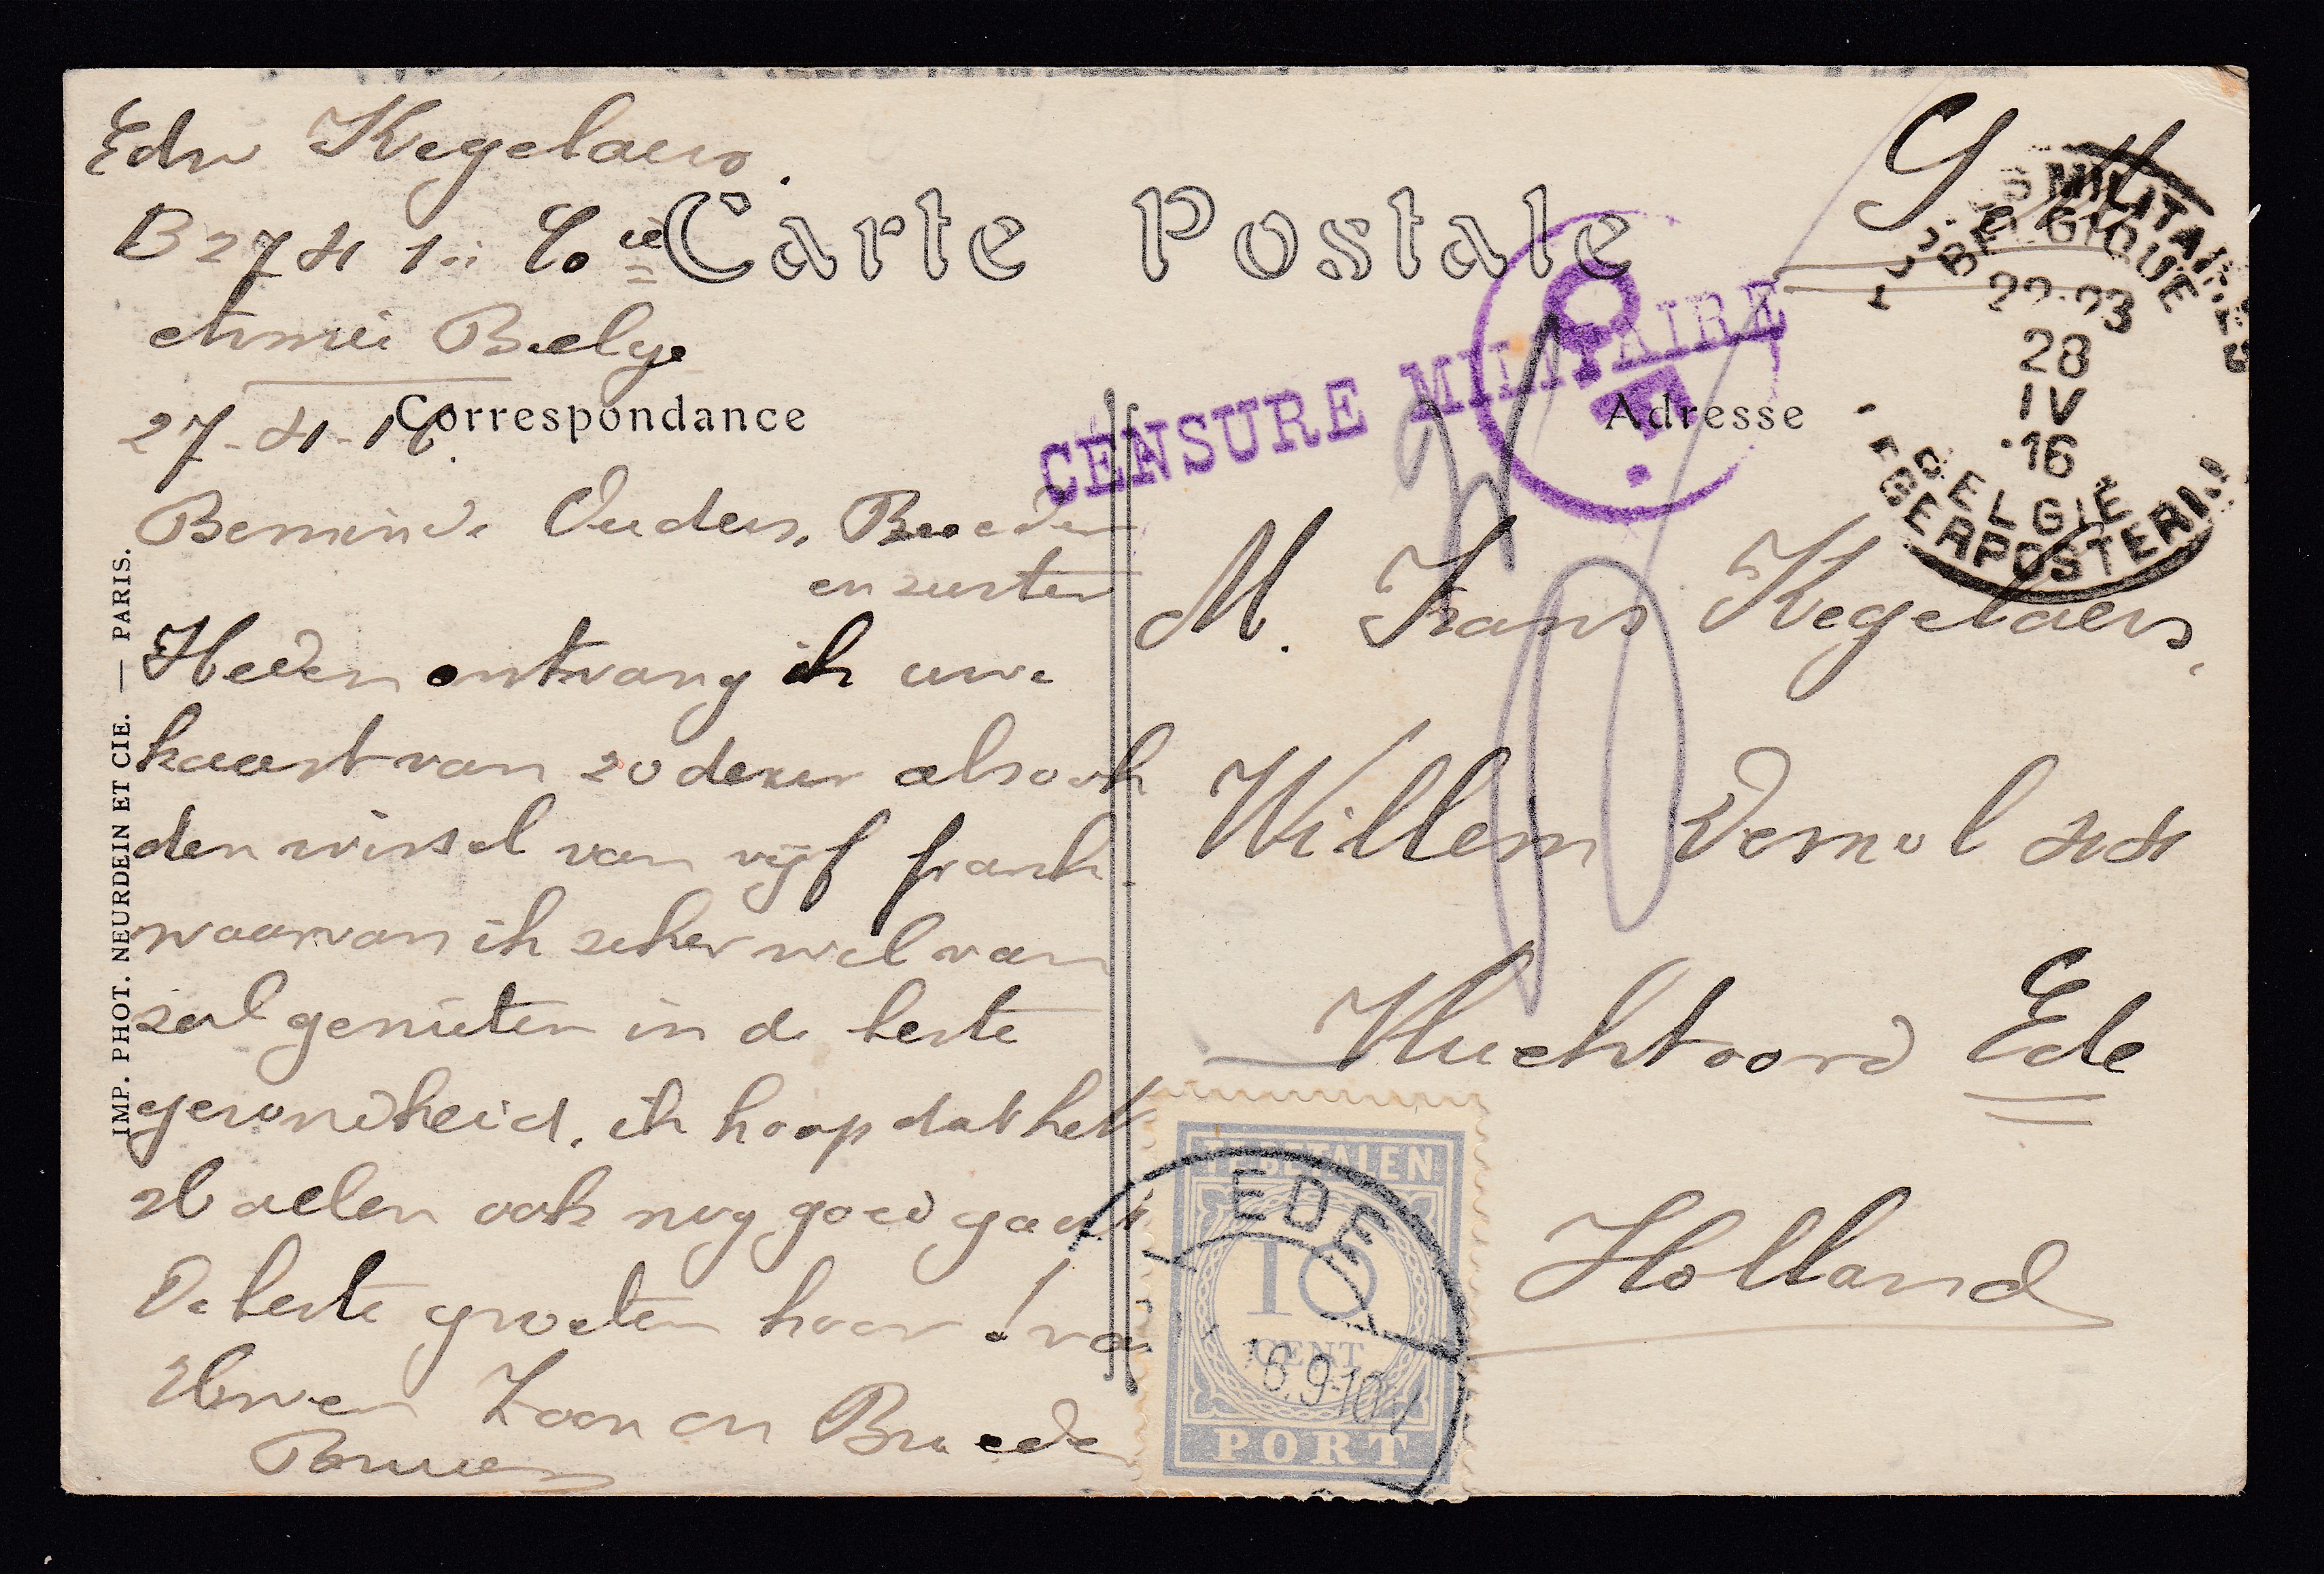 Edw Kegelaers.
B 274 1e Cie
Armée Belge
27-4-16.
Carte Postale
Correspondance
Adresse
CENSURE MILITAIRE
S.M.
POSTES MILITAIRES
BELGIQUE
22-23
28
IV
16
BELGIE
LEGERPOSTERIJ
Beminde Ouders, Broeder
en zuster
Heden ontvang ik uwe
kaart van 20 dezer alsook
den wissel van vijf frank
waarvan ik zeker wel van
zal genieten in de beste
gezondheid. ik hoop dat het
Ul aelen ook nog goed gaat
De beste groeten hoor! van
Uwen Zoon en Broeder
IMP. PHOT. NEURDEIN ET CIE. — PARIS.
M. Frans Kegelaers,
Willem Demol 44
Vluchtoord Ede
Holland
TE BETALEN
EDE
10
CENT
16.9-10V
PORT